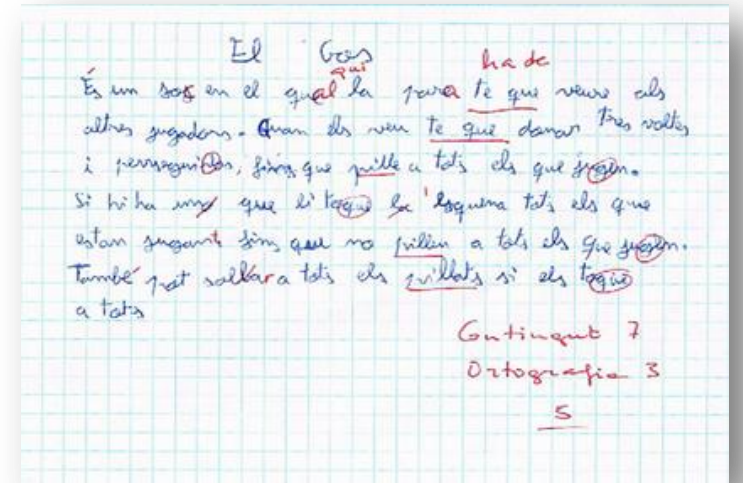 El Gos
qui ha de
És un joc en el qual la para te que veure als
altres jugadors. Quan els veu te que donar tres voltes
i perseguir los, fins que pille a tots els que juguen.
Si hi ha un que li toque la esquena tots els que
estan jugant fins que no pillen a tots els que juguen.
També pot salvar a tots els pillats si els toque
a tots
Contingut 7
Ortografia 3
5